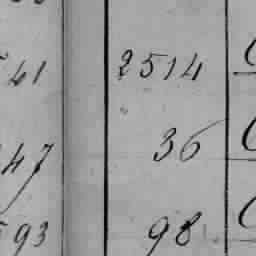 41 2514
47 36
93 98